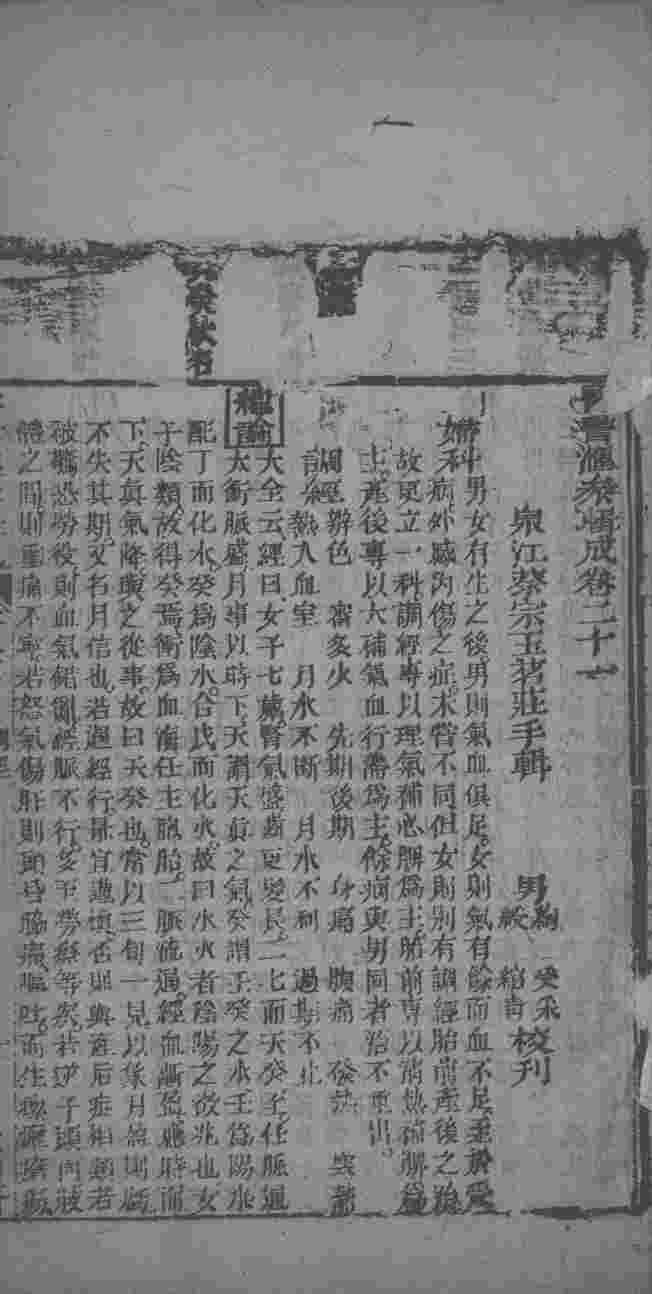 醫滙纂輯成卷二十一
泉江蔡宗玉茗莊手輯 男 校刊
婦科
男女有生之後男則氣血俱足女則氣有餘而血不足至於受
病外感內傷之症未嘗不同但女則別有調經胎前產後之
故更立一科調經專以理氣補心脾爲主胎前專以清熱補脾爲
主產後專以大補氣血行滯爲主餘病與男同者治不重出
調經辨色 先期後期 身痛 腹痛 發熱
熱入血室 月水不斷 月水不利 過期不止
總論
大全云經曰女子七歲腎氣盛齒更髮長二七而天癸至任脈通
太衝脈盛月事以時下天謂天眞之氣癸謂壬癸之水壬爲陽水
配丁而化水癸爲陰水合戊而化火故曰水火者陰陽之徵兆也女
子陰類故得癸焉衝爲血海任主胞胎二脈流通經血漸盈應時而
下天眞氣降與之從事故曰天癸也常以三旬一見以象月盈則虧
不失其期又名月信也若遇經行最宜謹愼否則與產后症相類若
被驚恐勞役則血氣錯亂經脈不行多至勞瘵等疾若逆于頭面肢
體之間則重痛不寧若怒氣傷肝則頭暈脇痛嘔吐而生瘰癧